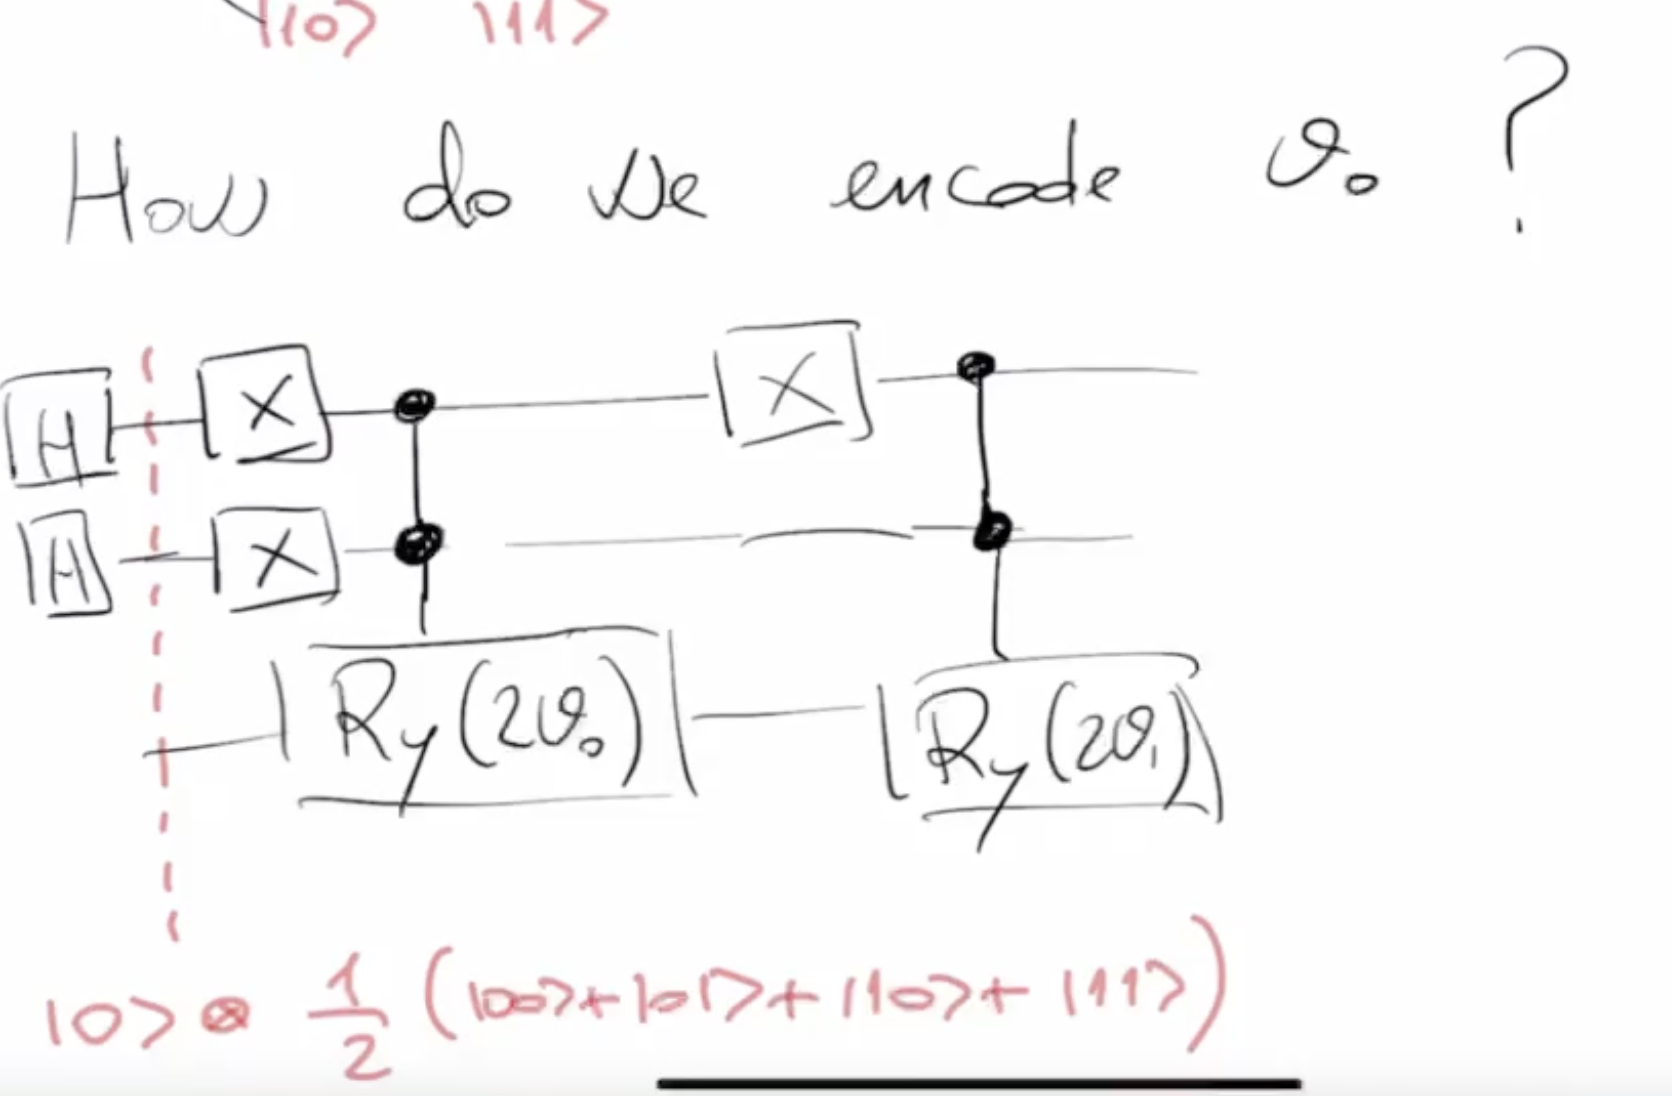 |10⟩ |11⟩
How do we encode ϑ₀ ?
H X X
H X
Ry(2ϑ₀) Ry(2ϑ₁)
|0⟩ ⊗ 1/2 (|00⟩+|01⟩+|10⟩+|11⟩)